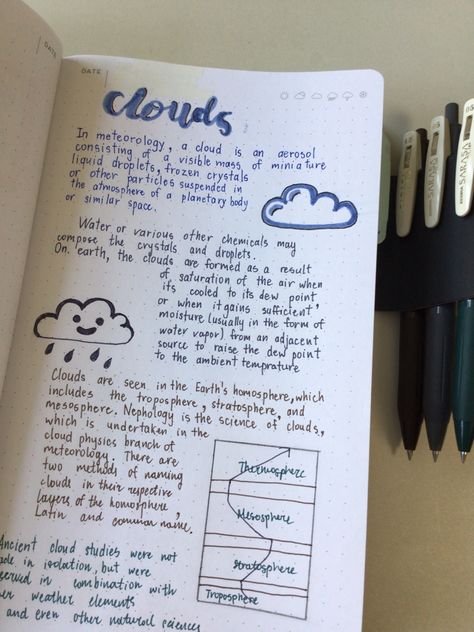 DATE
DATE
clouds
In meteorology, a cloud is an aerosol
consisting of a visible mass of miniature
liquid droplets, frozen crystals
or other particles suspended in
the atmosphere of a planetary body
or similar space.
Water or various other chemicals may
compose the crystals and droplets.
On earth, the clouds are formed as a result
of saturation of the air when
its cooled to its dew point,
or when it gains sufficient
moisture (usually in the form of
water vapor) from an adjacent
source to raise the dew point
to the ambient temprature
Clouds are seen in the Earth's homosphere, which
includes the troposphere, stratosphere, and
mesosphere. Nephology is the science of clouds,
which is undertaken in the
cloud physics branch of
meteorology. There are
two methods of naming
clouds in their respective
layers of the homosphere,
Latin and common name.
Thermosphere
Mesosphere
Stratosphere
Troposphere
Ancient cloud studies were not
made in isolation, but were
observed in combination with
weather elements
and even other natural sciences
SARASA
SARASA